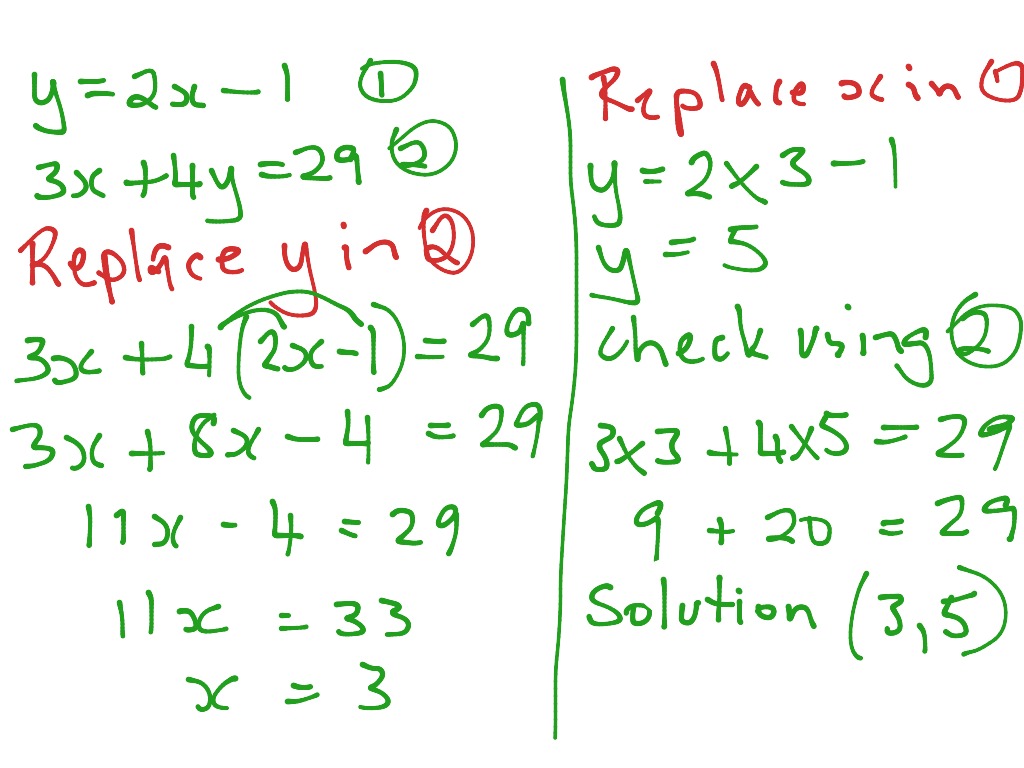 y = 2x - 1 ①
3x + 4y = 29 ②
Replace y in ②
3x + 4(2x - 1) = 29
3x + 8x - 4 = 29
11x - 4 = 29
11x = 33
x = 3
Replace x in ①
y = 2 × 3 - 1
y = 5
check using ②
3 × 3 + 4 × 5 = 29
9 + 20 = 29
Solution (3, 5)